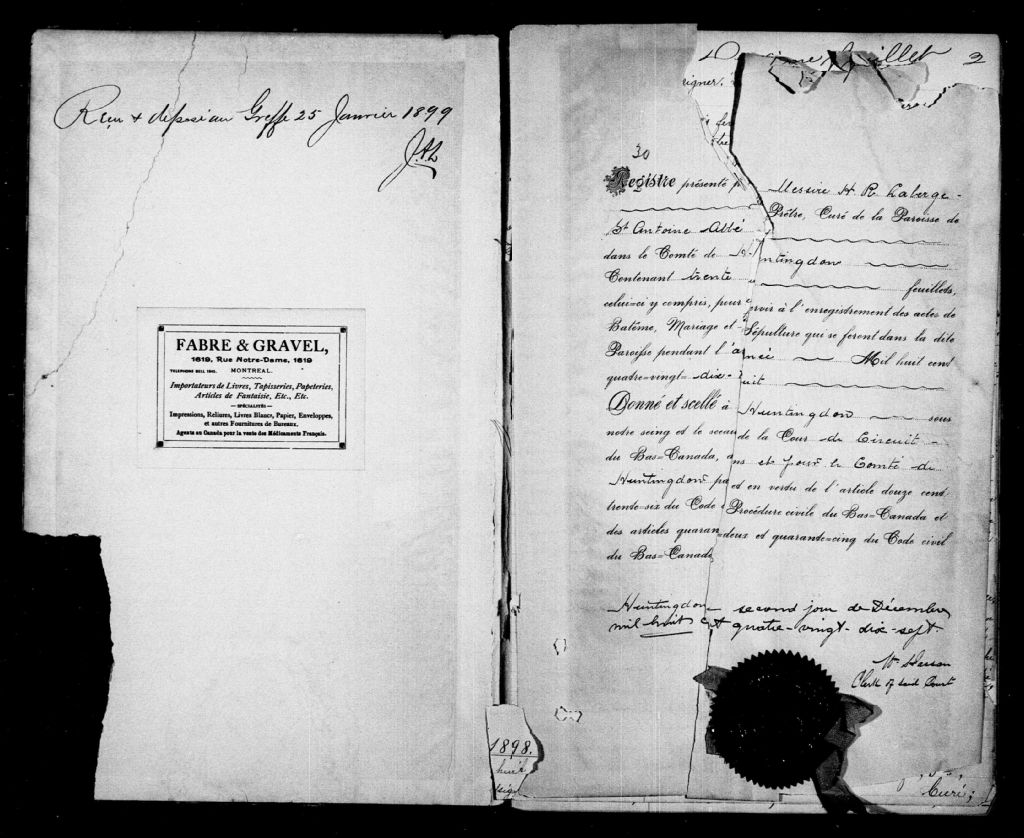 Reçu & déposé au Greffe 25 Janvier 1899
FABRE & GRAVEL,
1619, Rue Notre-Dame, 1619
MONTREAL.
Importateurs de Livres, Tapisseries, Papeteries,
Articles de Fantaisie, Etc., Etc.
—SPÉCIALITÉS—
Impressions, Reliures, Livres Blancs, Papier, Enveloppes,
et autres Fournitures de Bureaux.
Agents au Canada pour la vente des Médicaments Français.
1898.
huit
2
30
Registre présenté p Messire H. R. Laberge
Prêtre, Curé de la Paroisse de
St Antoine Abbé
dans le Comté de Huntingdon
Contenant trente feuillets,
celui=ci y compris, pour servir à l'enregistrement des actes de
Batême, Mariage et Sépulture qui se feront dans la dite
Paroisse pendant l'année Mil huit cent
quatre=vingt= dix-huit
Donné et scellé à Huntingdon sous
notre seing et le sceau de la Cour de Circuit
du Bas=Canada, dans et pour le Comté de
Huntingdon et en vertu de l'article douze cent
trente=six du Code Procédure civile du Bas=Canada et
des articles quarante=deux et quarante=cinq du Code civil
du Bas=Canada
Huntingdon second jour de Décembre
mil huit cent quatre-vingt-dix-sept.
Clerk of said Court
Curé;